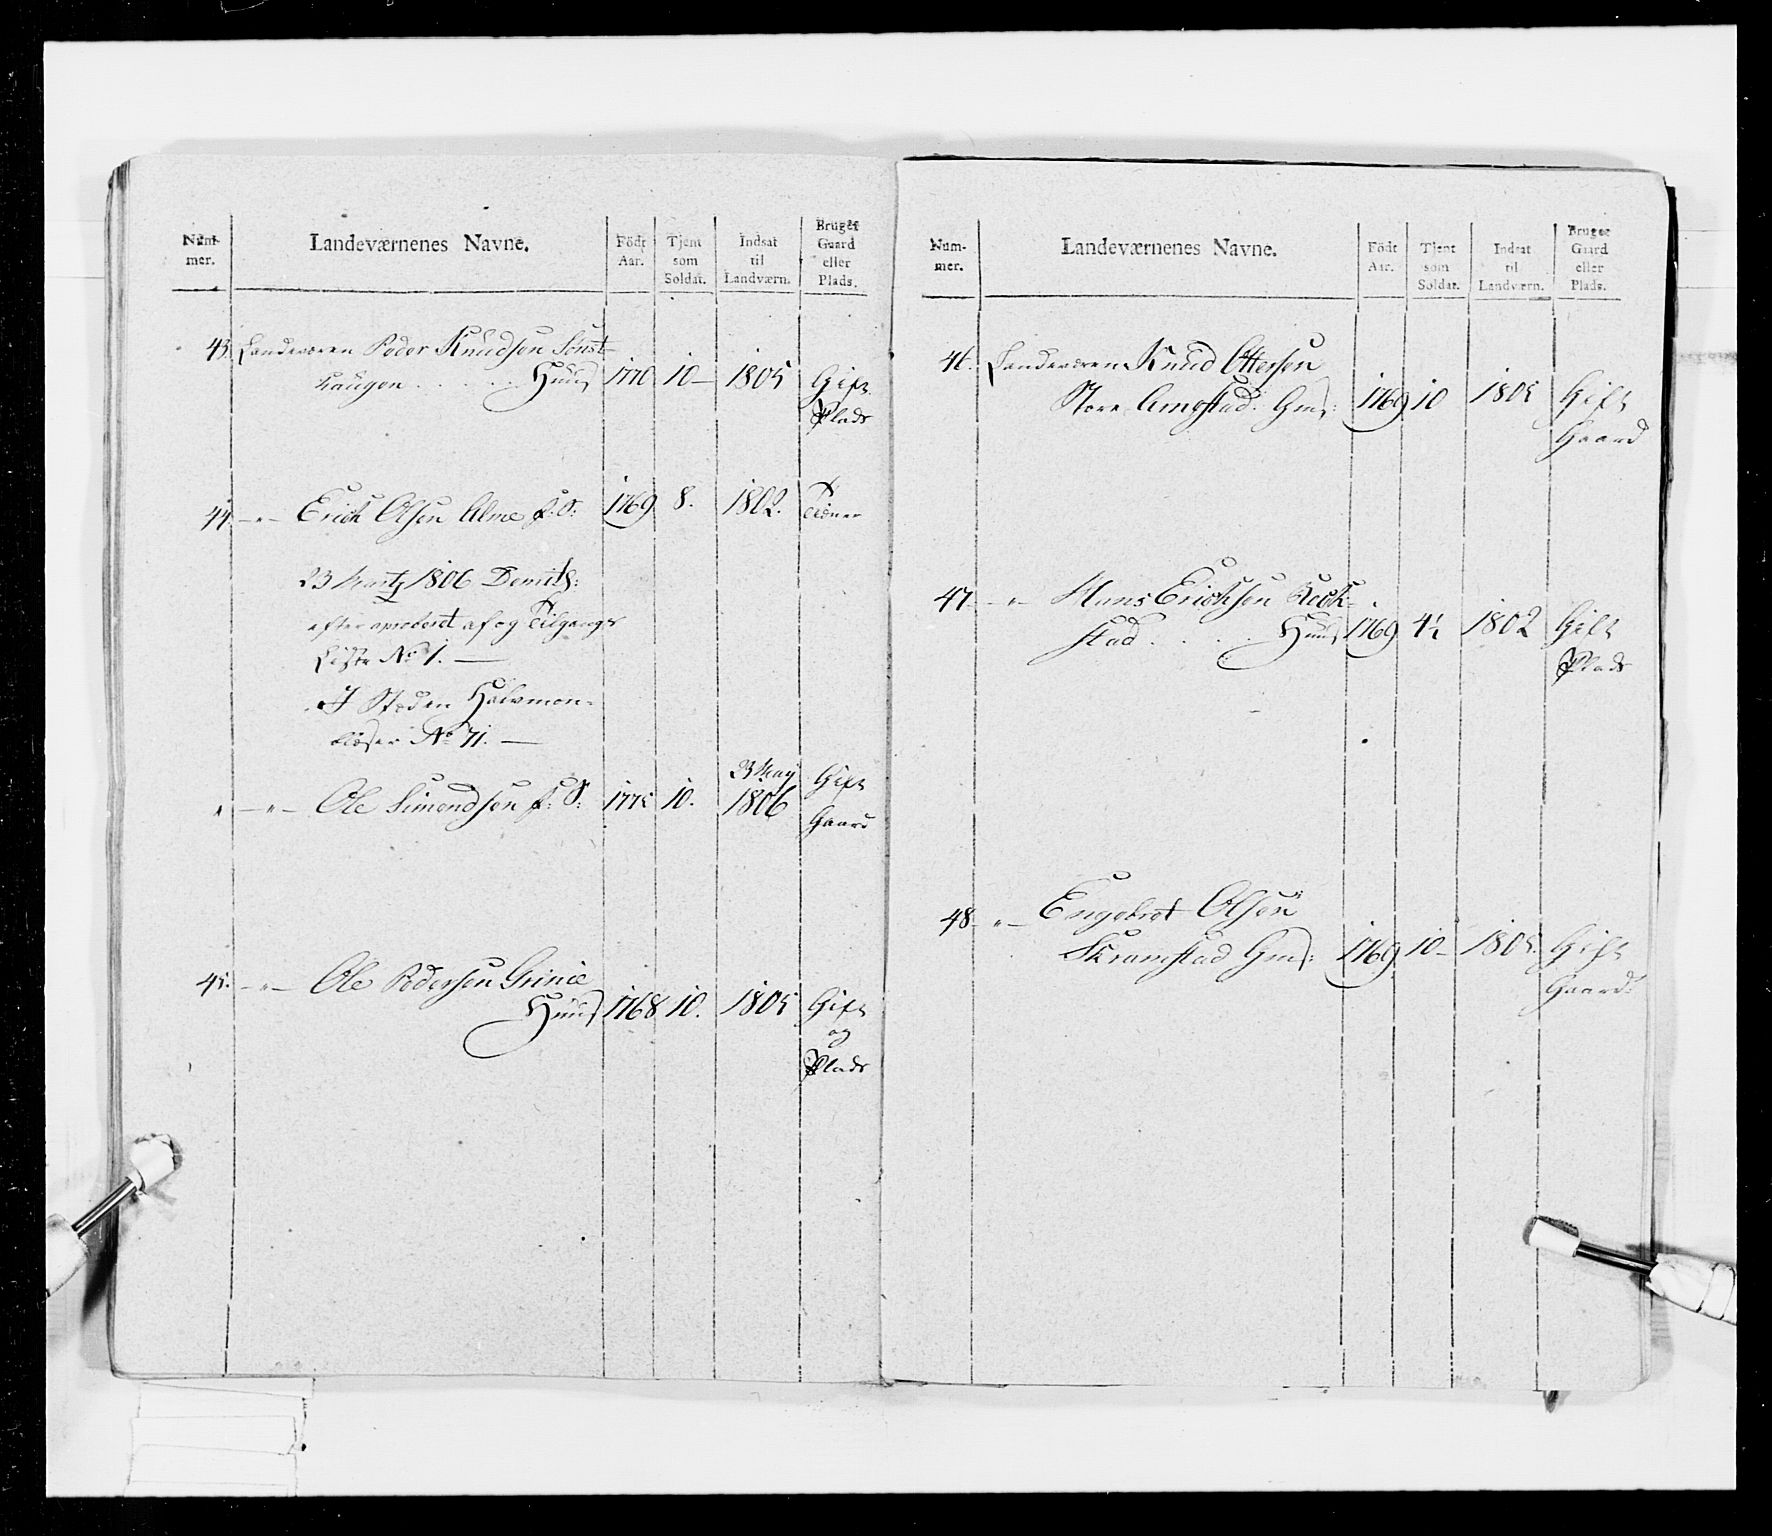 Num-
mer.
Landeværnenes Navne.
Födt
Aar.
Tjent
som
Soldat.
Indsat
til
Landværn.
Bruger
Gaard
eller
Plads.
43. Landeværn Peder Knudsen Sönst-
haugen . . . . . Huus 1770 10 — 1805 Gift
Plads
44. — " — Erich Olsen Alme f. S: 1769 8. 1802. Tiener
23 Martz 1806 Demits:
efter aproberet af og Tilgangs
Liste No 1. —
I Stæden
No 71. —
" — " — Ole Simendsen f: S: 1775 10. 23 May 1806 Gift
Gaard
45. — " — Ole Pedersen Grinie
Huus 1768 10. 1805 Gift
og
Plads
Num-
mer.
Landeværnenes Navne.
Födt
Aar.
Tjent
som
Soldat.
Indsat
til
Landværn.
Bruger
Gaard
eller
Plads.
46. Landeværn Knud Ottersen
Store Gms: 1769 10 1805 Gift
Gaard
47. — " — Hans Erichsen
stad . . . . Huus 1769 4½ 1802 Gift
Plads
48. " — Engebret Olsen
Skramstad Gms: 1769 10 — 1805. Gift
Gaard.